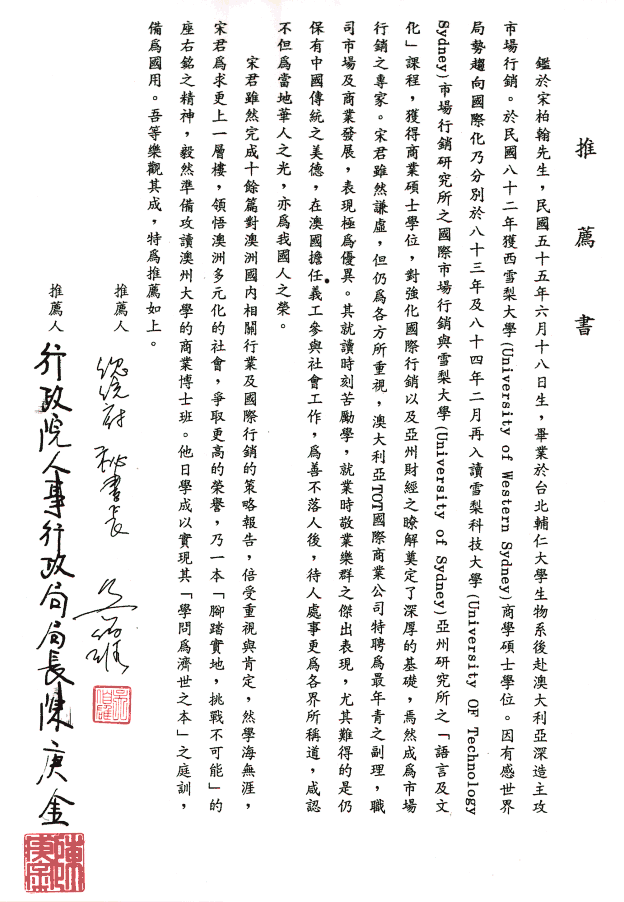 推薦書
鑑於宋柏翰先生，民國五十五年六月十八日生，畢業於台北輔仁大學生物系後赴澳大利亞深造主攻
市場行銷。於民國八十二年獲西雪梨大學(University of Western Sydney)商學碩士學位。因有感世界
局勢趨向國際化乃分別於八十三年及八十四年二月再入讀雪梨科技大學(University OF Technology
Sydney)市場行銷研究所之國際市場行銷與雪梨大學(University of Sydney)亞州研究所之「語言及文
化」課程，獲得商業碩士學位，對強化國際行銷以及亞州財經之瞭解奠定了深厚的基礎，焉然成為市場
行銷之專家。宋君雖然謙虛，但仍為各方所重視，澳大利亞TOT國際商業公司特聘為最年青之副理，職
司市場及商業發展，表現極為優異。其就讀時刻苦勵學，就業時敬業樂群之傑出表現，尤其難得的是仍
保有中國傳統之美德，在澳國擔任義工參與社會工作，為善不落人後，待人處事更為各界所稱道，咸認
不但為當地華人之光，亦為我國人之榮。
宋君雖然完成十餘篇對澳洲國內相關行業及國際行銷的策略報告，倍受重視與肯定，然學海無涯，
宋君為求更上一層樓，領悟澳洲多元化的社會，爭取更高的榮譽，乃一本「腳踏實地，挑戰不可能」的
座右銘之精神，毅然準備攻讀澳州大學的商業博士班。他日學成以實現其「學問為濟世之本」之庭訓，
備為國用。吾等樂觀其成，特為推薦如上。
推薦人 總統府 秘書長 吳伯雄
推薦人 行政院人事行政局局長陳庚金
陳庚金